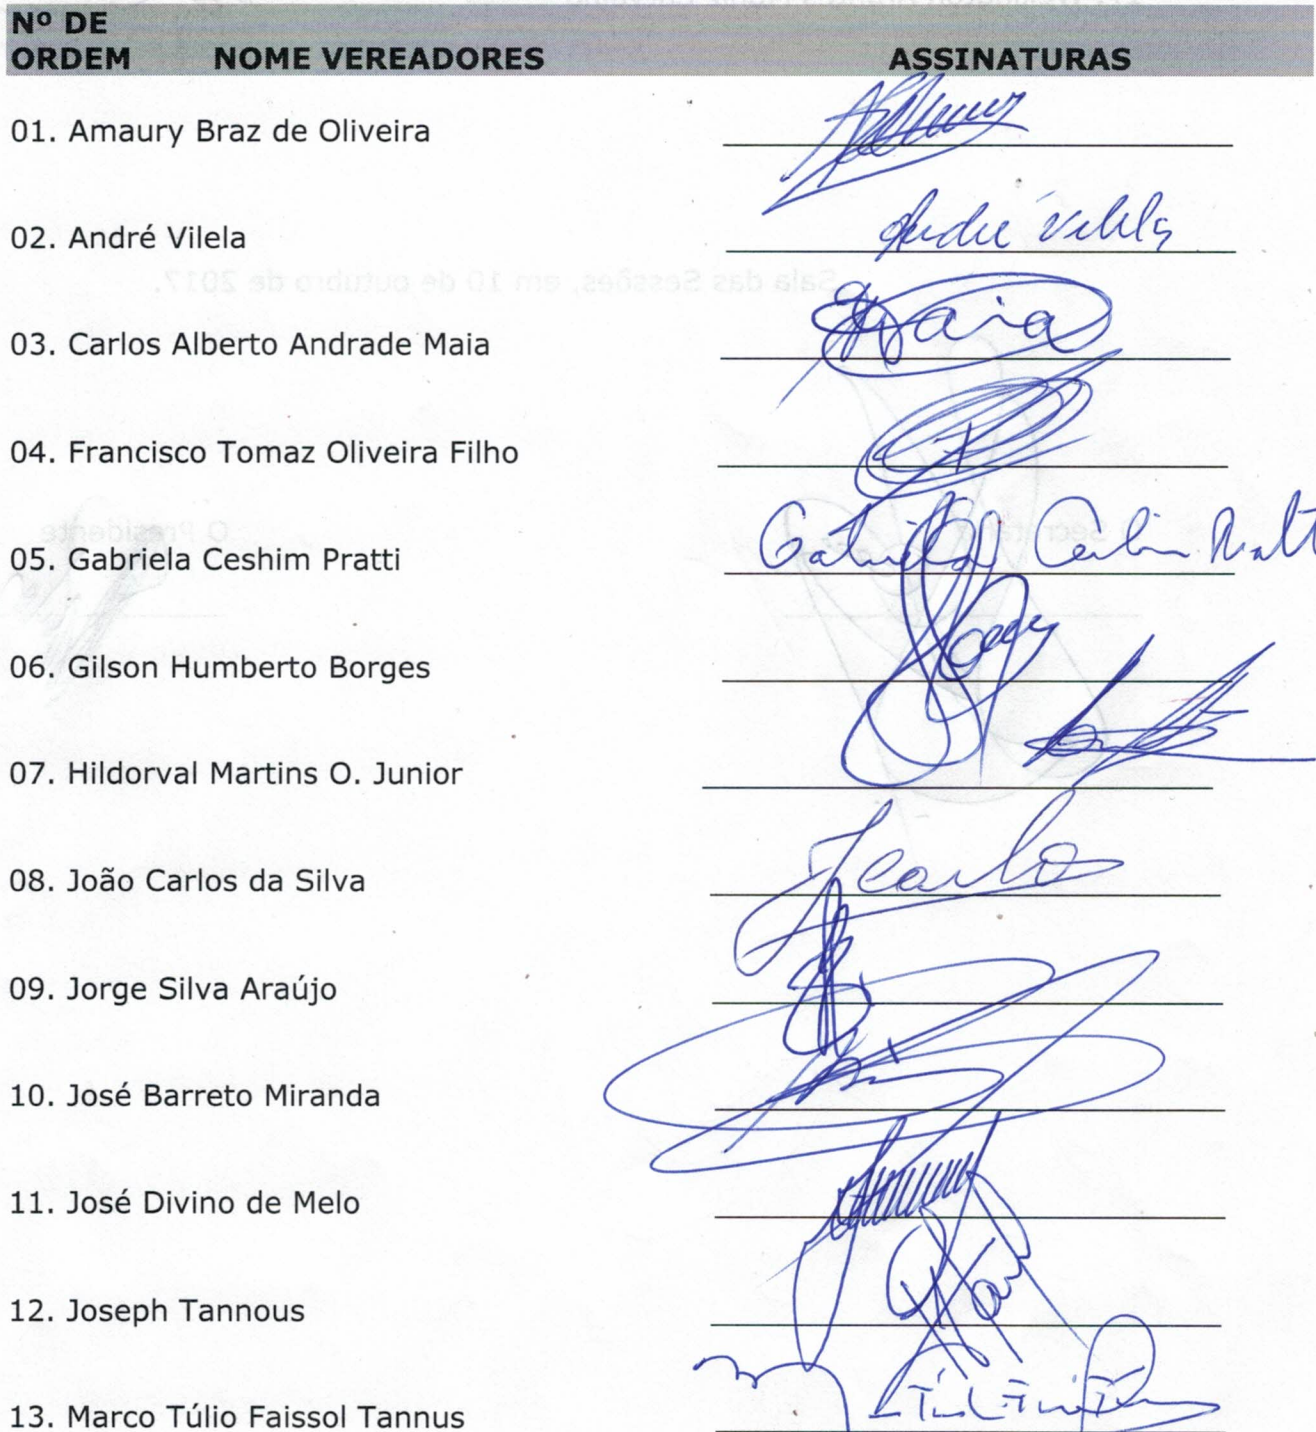 Nº DE
ORDEM NOME VEREADORES ASSINATURAS
01. Amaury Braz de Oliveira
02. André Vilela André Vilela
Sala das Sessões, em 10 de outubro de 2017.
03. Carlos Alberto Andrade Maia Maia
04. Francisco Tomaz Oliveira Filho
O Secretário O Presidente
05. Gabriela Ceshim Pratti Gabriela Ceshim Pratti
06. Gilson Humberto Borges
07. Hildorval Martins O. Junior
08. João Carlos da Silva J Carlos
09. Jorge Silva Araújo
10. José Barreto Miranda
11. José Divino de Melo
12. Joseph Tannous
13. Marco Túlio Faissol Tannus